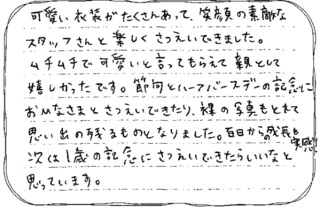 可愛い衣装がたくさんあって、笑顔の素敵な
スタッフさんと楽しくさつえいできました。
ムチムチで可愛いと言ってもらえて親として
嬉しかったです。節句とハーフバースデーの記念に
おひなさまとさつえいできたり、裸の写真もとれて
思い出の残るものとなりました。百日からの成長も実感!
次は1歳の記念にさつえいできたらいいなと
思っています。